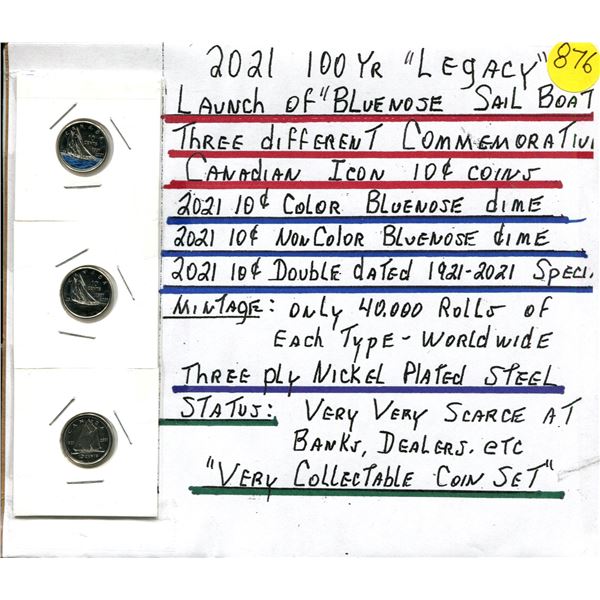 2021 100 YR "LEGACY"
876
LAUNCH OF "BLUENOSE SAIL BOAT
THREE dIFFERENT COMMEMORATIV
CANADIAN ICON 10¢ COINS
2021 10¢ COLOR BLUENOSE dIME
2021 10¢ NONCOLOR BLUENOSE dIME
2021 10¢ DOUBLE dATED 1921-2021 SPECI.
MINTAGE: ONLY 40.000 ROLLS OF
EACH TYPE - WORLDWIDE
THREE PLY NICKEL PLATED STEEL
STATUS: VERY VERY SCARCE AT
BANKS, DEALERS. ETC
"VERY COLLECTABLE COIN SET"